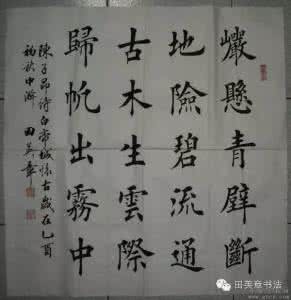 巖懸青壁斷
地險碧流通
古木生雲際
歸帆出霧中
陳子昂詩白帝城懷古歲在乙酉
初秋中澣 田英章
田英章书法